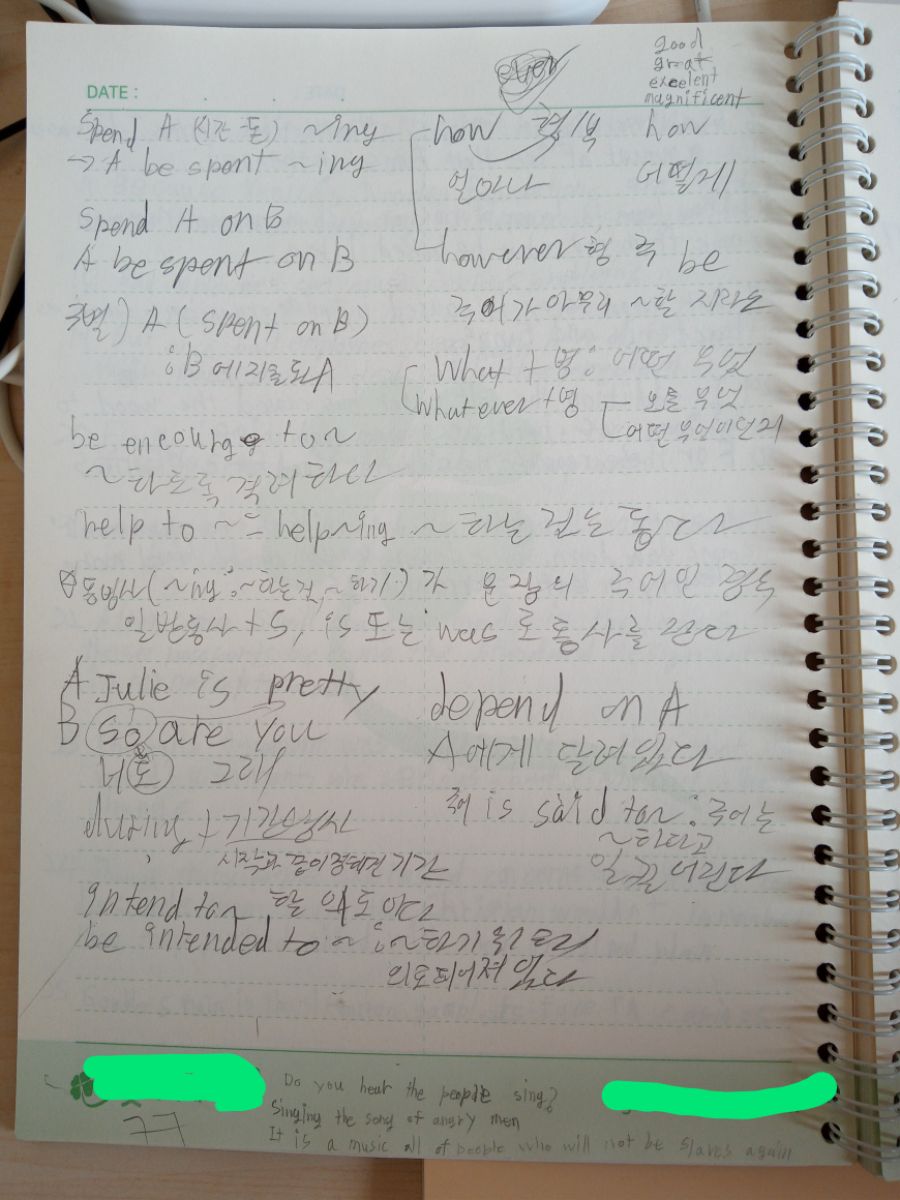 good
great
excelent
magnificent
DATE :
Spend A (시간·돈) ~ing
→ A be spent ~ing
Spend A on B
A be spent on B
A (spent on B)
: B에 지출된 A
be encourge to~
~하도록 격려하다
help to ~ = help~ing ~하는 것는 돕다
how 형/부
얼마나
how
어떻게
however 형 주 be
주어가 아무리 ~할 지라도
What + 명 : 어떤 무엇
Whatever + 명
모든 무엇
어떤 무엇이던지
☆동명사(~ing : ~하는 것, ~하기)가 문장의 주어인 경우
일반동사 + S, is 또는 was로 동사를 쓴다
A Julie is pretty
B So are you
너도 그래
during + 기간명사
시작과 끝이 정해진 기간
intend to~ 할 의도이다
be intended to ~ : ~하기 위
의도되어져 있다
depend on A
A에게 달려있다
주어 is said to~ : 주어는
~하다고
Do you hear the people sing?
Singing the song of angry men
It is a music all of people who will not be slaves again